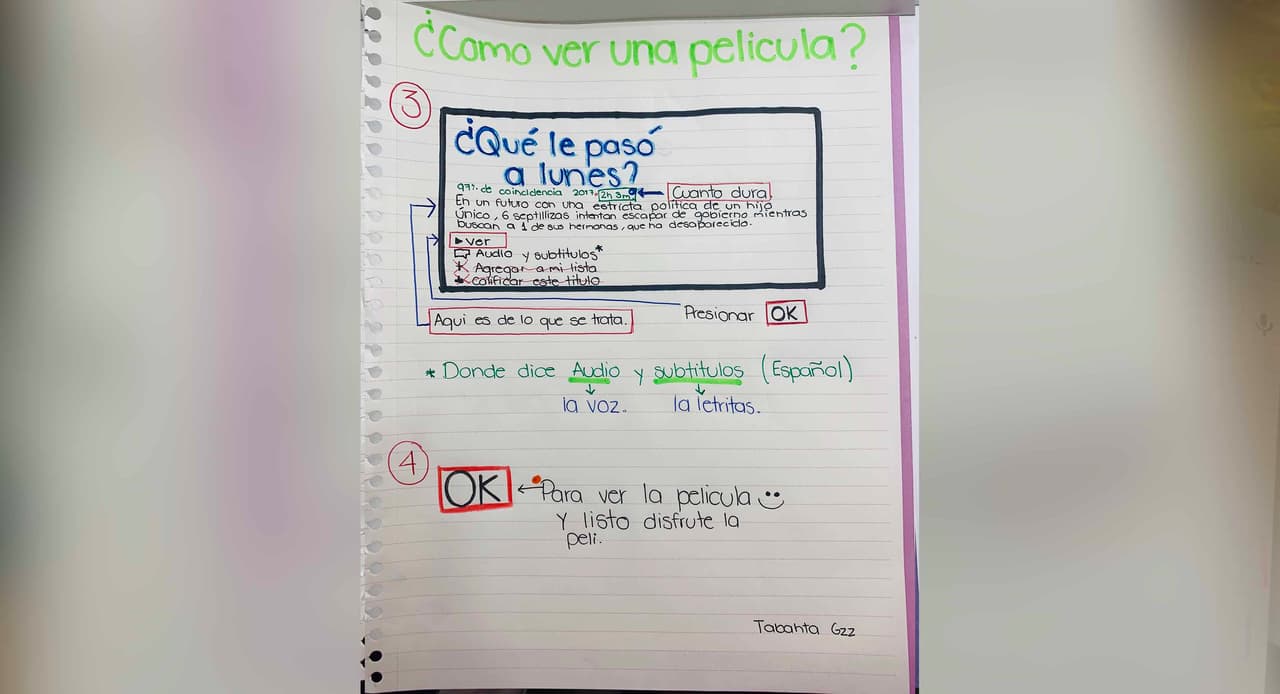 ¿Como ver una pelicula?
3
¿Qué le pasó
a lunes?
97% de coincidencia 2017. 2h 3m ← Cuanto dura
En un futuro con una estricta política de un hijo
único, 6 septillizas intentan escapar de gobierno mientras
buscan a 1 de sus hermanas, que ha desaparecido.
▶ ver
Audio y subtitulos*
Agregar a mi lista
Calificar este titulo
Aqui es de lo que se trata.
Presionar OK
* Donde dice Audio y subtitulos (Español)
la voz. la letritas.
4
OK ← Para ver la pelicula
Y listo disfrute la
peli.
Tabahta Gzz